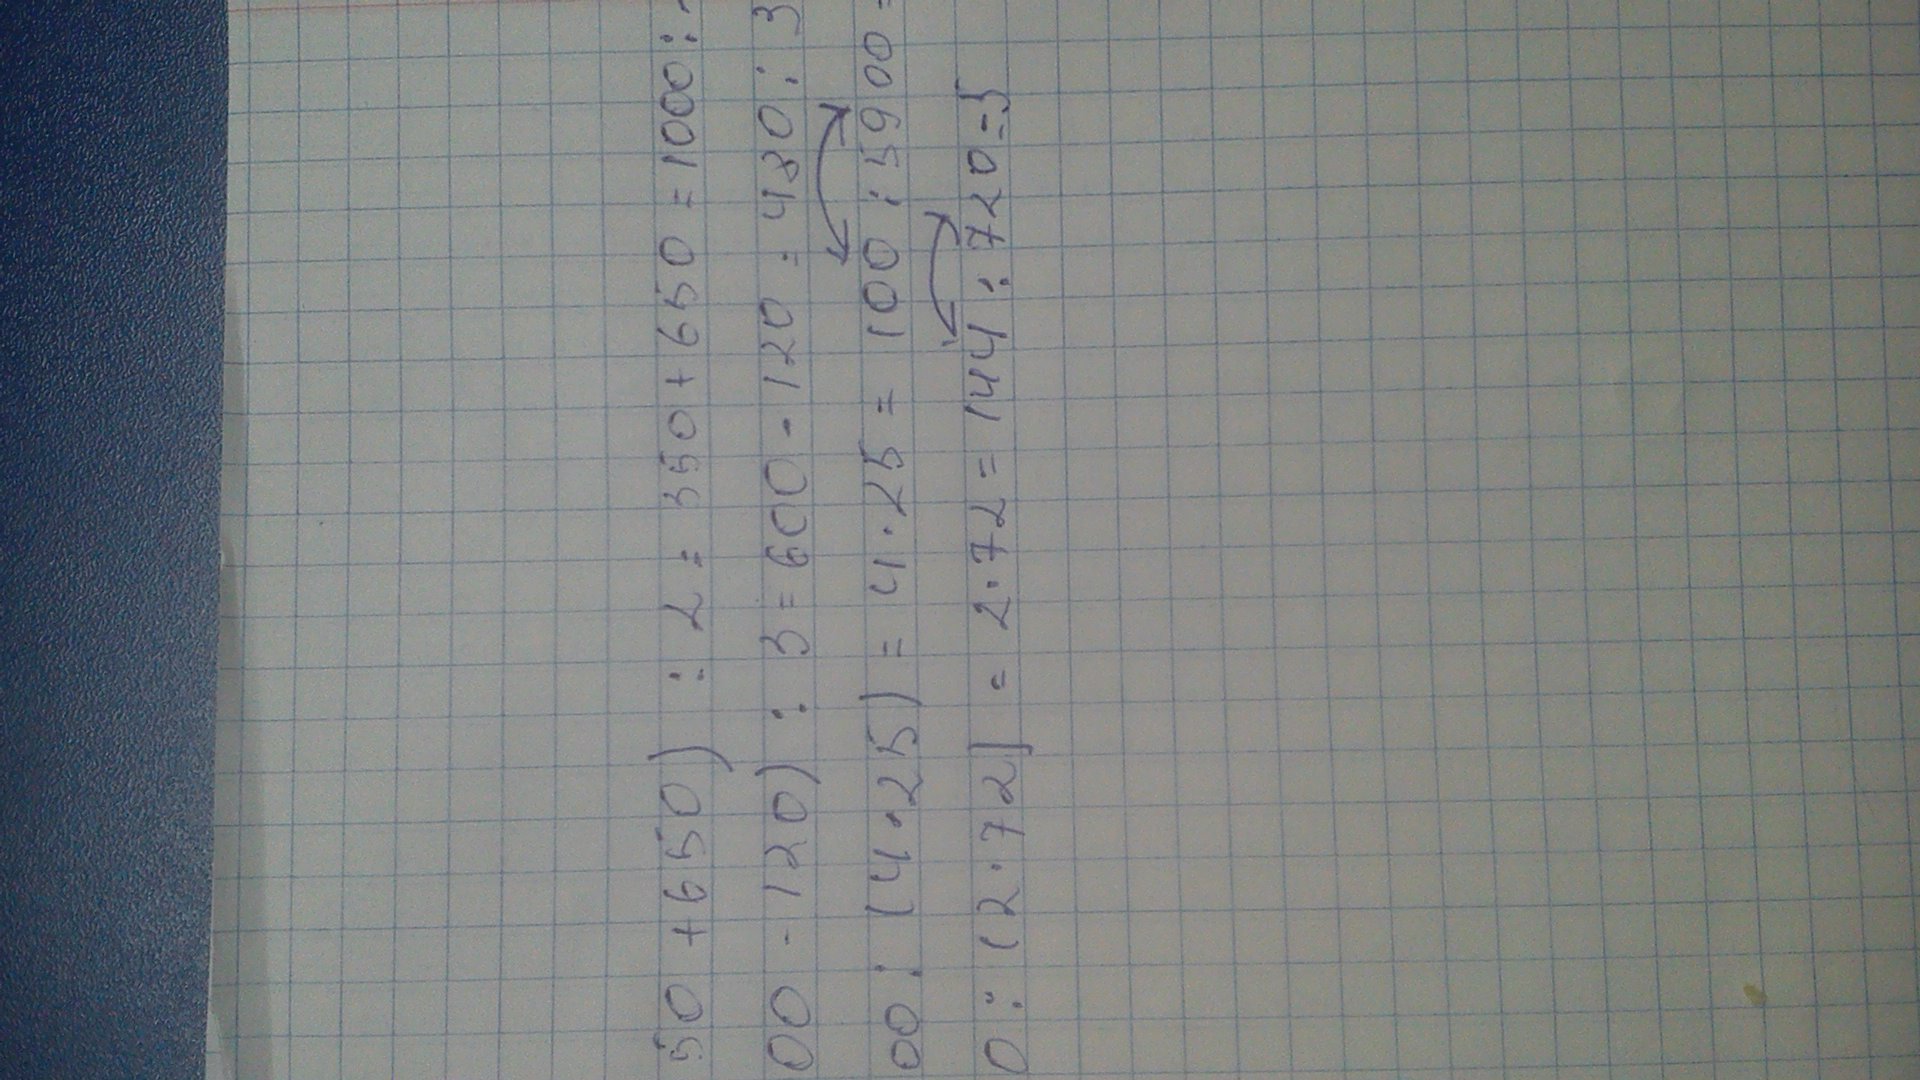 50 + 650) : 2 = 350 + 650 = 1000 :
00 - 120) : 3 = 600 - 120 = 480 : 3
00 : (4 · 25) = 4 · 25 = 100 : 5900 =
0 : (2 · 72) = 2 · 72 = 144 : 720 = 5